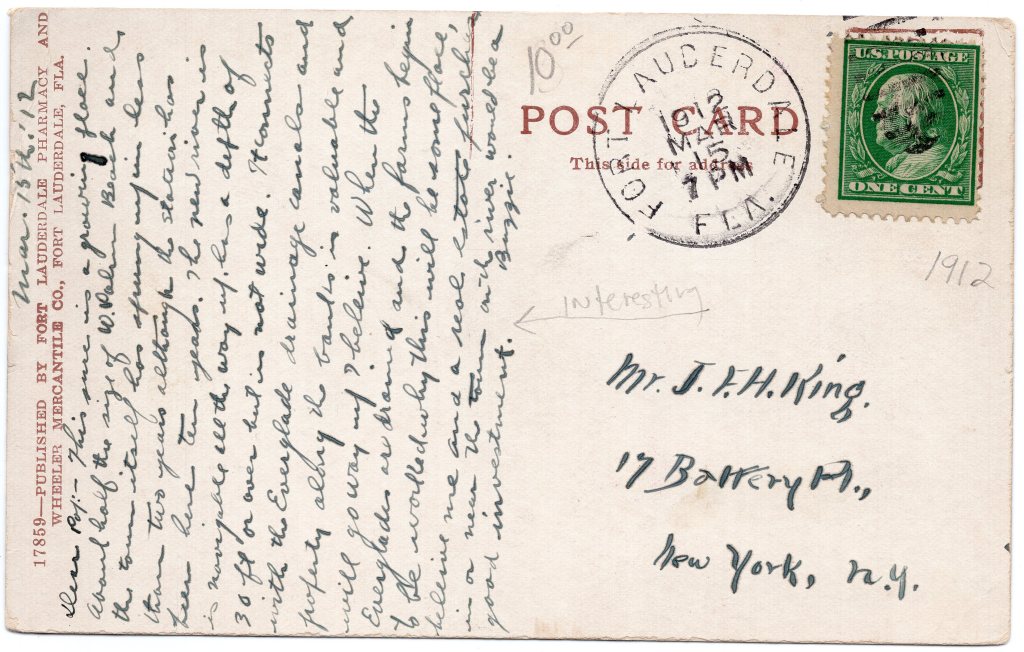 17859—PUBLISHED BY FORT LAUDERDALE PHARMACY AND
WHEELER MERCANTILE CO., FORT LAUDERDALE, FLA.
Mar. 15th. '12
Dear Pop:- This sure is a growing place
about half the size of W. Palm Beach and
the town itself has sprung up in less
than two years although the station has
been here ten years. The new river is
is navigable all the way up, has a depth of
30 ft or over but is not wide. It connects
with the Everglade drainage canals and
property along the banks is valuable and
will go way up I believe. When the
Everglades are drained and the farms begin
to be worked why this will be some place
believe me and a real estate purchase
in or near the town on the river would be a
good investment. Buzzie.
10 00
POST CARD
This side for address
FORT LAUDERDALE
1912
MAR
15
7 PM
FLA.
U.S. POSTAGE
ONE CENT
1912
Interesting
Mr. J. F. H. King.
17 Battery Pl.,
New York, N.Y.